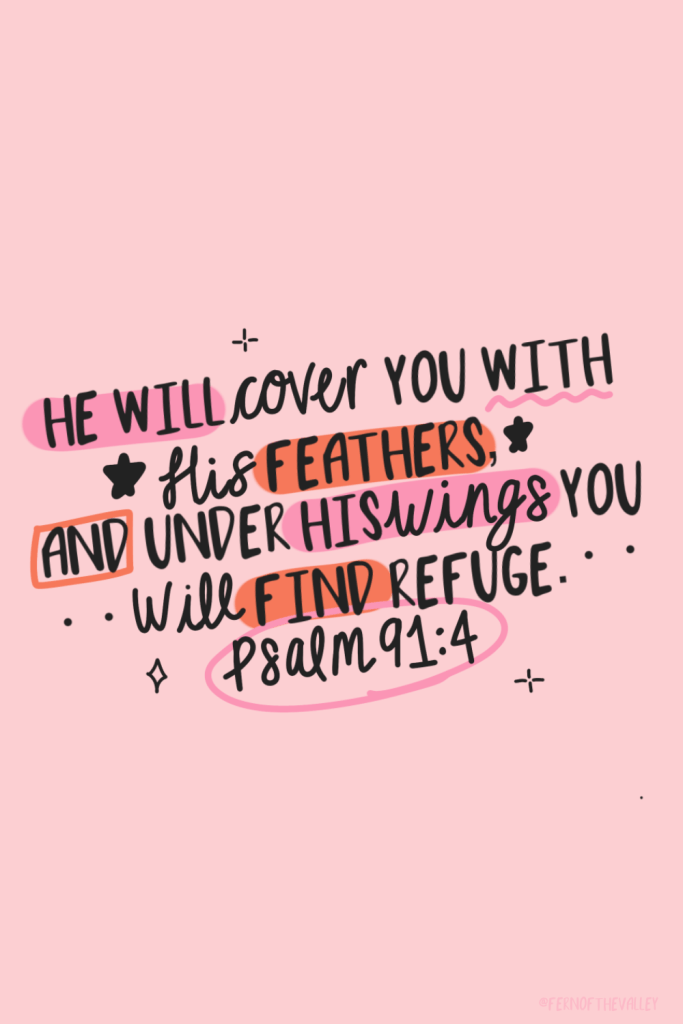 HE WILL cover YOU WITH
His FEATHERS,
AND UNDER HIS wings YOU
Will FIND REFUGE.
Psalm 91:4
@FERNOFTHEVALLEY